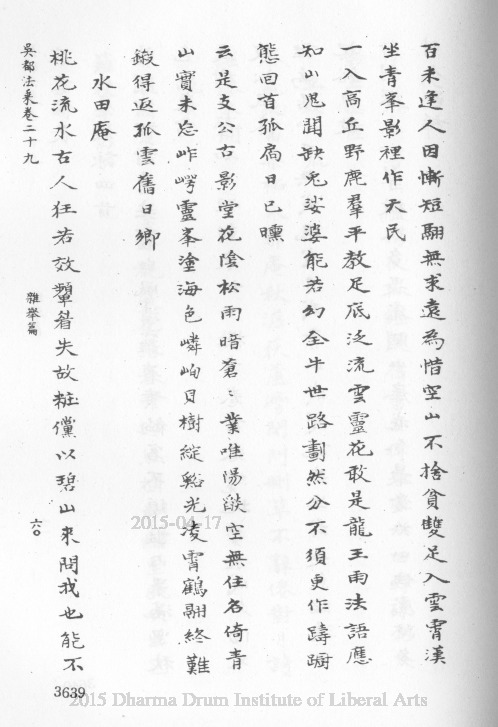 百未逢人因慚短翮無求遠為惜空山不捨貧雙足入雲霄漢
坐青峯影裡作天民
一入高丘野鹿羣平教足底泛流雲靈花敢是龍王雨法語應
知山鬼聞缺兎娑婆能若幻全牛世路劃然分不須更作躊躕
態回首孤扃日已曛
云是支公古影堂花陰松雨暗蒼々業唯陽燄空無住名倚青
山實未忘岞崿靈峯塗海色嶙峋貝樹綻谿光凌霄鶴翮終難
鎩得返孤雲舊日鄉
水田庵
桃花流水古人狂若效顰眉失故粧儻以碧山來問我也能不
吳都法乘卷二十九
雜舉篇
六〇
3639
2015-04-17
2015 Dharma Drum Institute of Liberal Arts